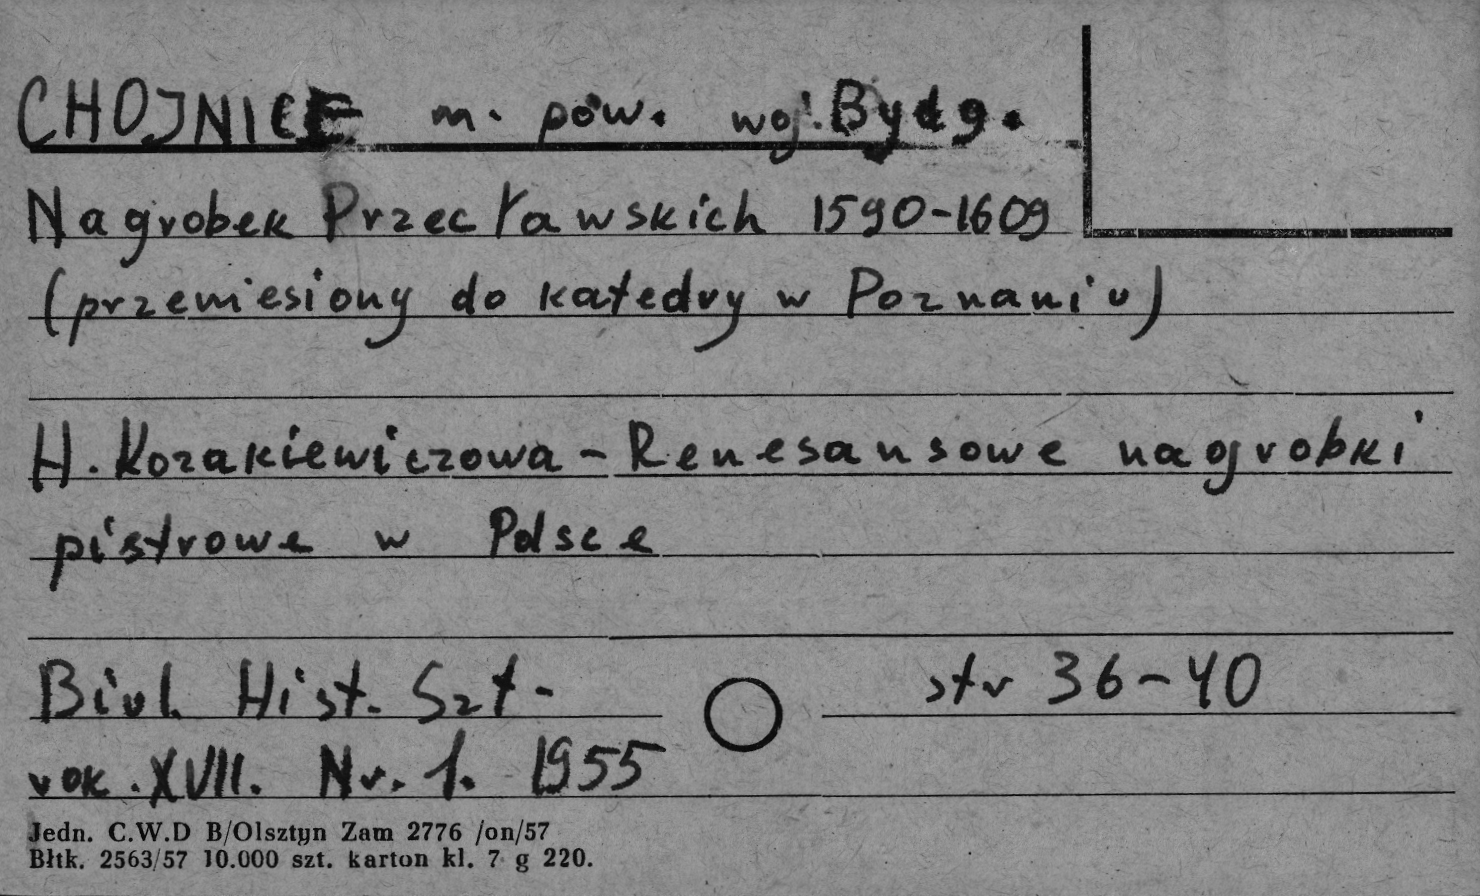 CHOJNICE m. pow. woj. Bydg.
Nagrobek Przecławskich 1590-1609
(przeniesiony do katedry w Poznaniu)
H. Kozakiewiczowa - Renesansowe nagrobki
piętrowe w Polsce
Biul. Hist. Szt-
rok. XVII. Nr. 1. 1955
str 36-40
Jedn. C.W.D B/Olsztyn Zam 2776 /on/57
Błtk. 2563/57 10.000 szt. karton kl. 7 g 220.